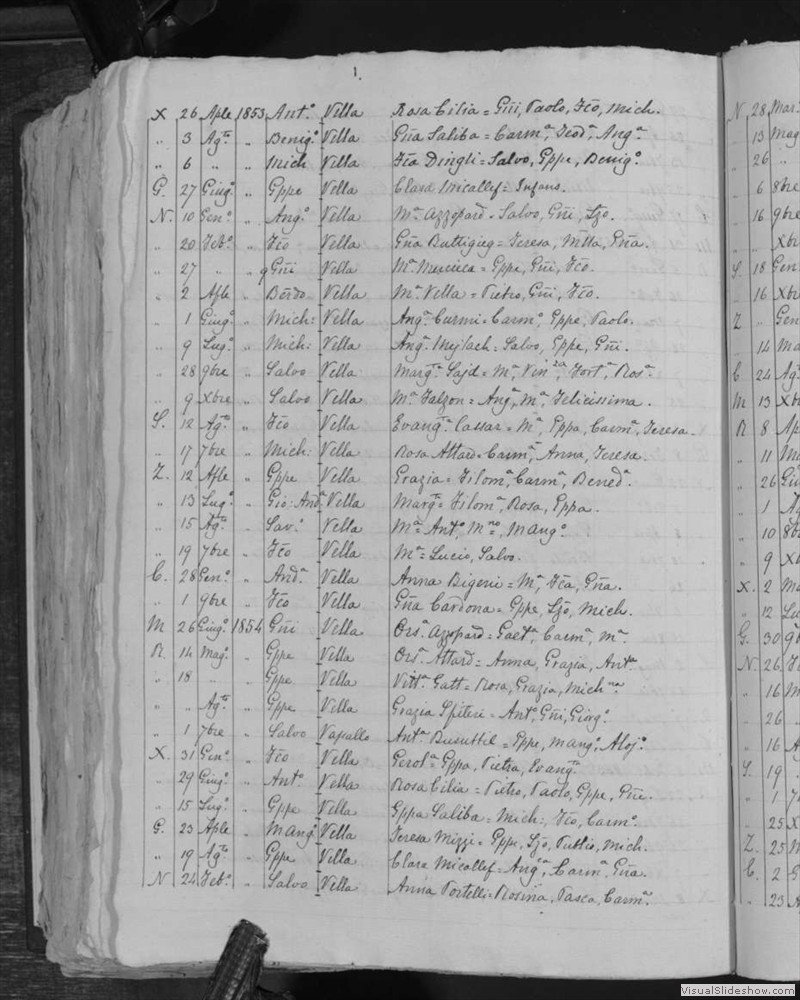 1.
X 26 Aple 1853 Ant.º Vella Rosa Cilia = Gñi, Paolo, Fcõ, Mich.
" 3 Ag.to " Benig.º Vella Gña Saliba = Carm.a, Teod.a, Ang.a
" 6 " " Mich Vella Fca Dingli = Salvo, Gppe, Benig.º
G. 27 Giug.º " Gppe Vella Clara Micallef =
N. 10 Gen.º " Ang.º Vella M.a Azzopard = Salvo, Gñi, Lzõ.
" 20 Feb.º " Fcõ Vella Gña Buttigieg = Teresa, Gña.
" 27 " " Gñi Vella M.a Mercieca = Gppe, Gñi, Fcõ.
" 2 Aple " Berdo Vella M.a Vella = Pietro, Gñi, Fcõ.
" 1 Giug.º " Mich: Vella Ang.a Curmi = Carm.º, Gppe, Paolo.
" 9 Lug.º " Mich: Vella Ang.a = Salvo, Gppe, Gñi.
" 28 9bre " Salvo Vella Marg.a Sajd = M.a, Fort.a, Ros.a
" 9 Xbre " Salvo Vella M.a Falzon = Ang.a, M.a, Felicissima.
S. 12 Ag.to " Fcõ Vella Evang.a Cassar = M.a, Gppa, Carm.a, Teresa.
" 17 7bre " Mich: Vella Rosa Attard = Carm.a, Anna, Teresa.
Z. 12 Aple " Gppe Vella Grazia = Filom.a, Carm.a, Bened.a
" 13 Lug.º " Gio: And.a Vella Marg.a = Filom.a, Rosa, Gppa.
" 15 Ag.to " Sav.º Vella M.a = Ant.º, M.no, M Ang.º
" 19 7bre " Fcõ Vella M.a = Lucio, Salvo.
C. 28 Gen.º " And.a Vella Anna Bigeni = M.a, Fca, Gña.
" 1 9bre " Fcõ Vella Gña Cardona = Gppe, Lzõ, Mich.
M 26 Giug.º 1854 Gñi Vella Ors.a Azzopard = Gaet.a, Carm.a, M.a
R. 14 Mag.º " Gppe Vella Ors.a Attard = Anna, Grazia, Ant.a
" 18 " " Gppe Vella Vitt.a Gatt = Rosa, Grazia, Mich.na
" " Ag.to " Gppe Vella Grazia Spiteri = Ant.º, Gñi, Giorg.º
" 1 7bre " Salvo Vassallo Ant.a Busuttil = Gppe, M Ang.º, Aloj.º
X. 31 Gen.º " Fcõ Vella Gerol.a = Gppa, Pietra, Evang.a
" 29 Giug.º " Ant.º Vella Rosa Cilia = Pietro, Paolo, Gppe, Gñi.
" 15 Lug.º " Gppe Vella Gppa Saliba = Mich:, Fcõ, Carm.º
G. 23 Aple " M Ang.º Vella Teresa Mizzi = Gppe, Lzõ, Publio, Mich.
" 19 Ag.to " Gppe Vella Clara Micallef = Ang.ca, Carm.a, Gña.
N 24 Feb.º " Salvo Vella Anna Portelli = Rosina, Pasca, Carm.a
N. 28 Mar
" 13 Mag
" 26 "
" 6 8bre
" 16 9bre
" " Xbr
S. 18 Gen
" 16 Xbr
Z " Gen
" 14 Ma
C 24 Ag
M 13 Xb
R 8 Ap
" 11 Ma
" 26 Giu
" 1 Ag
" 10 8b
" 9 Xb
X. 2 Ma
" 12 Lu
G. 30 9b
N. 26 Fe
" 16 M
" 26 "
" 16 A
S. 19 "
" 1 7
" 25 X
Z. 25 M
C. 2 G
" 23 A
VisualSlideshow.com